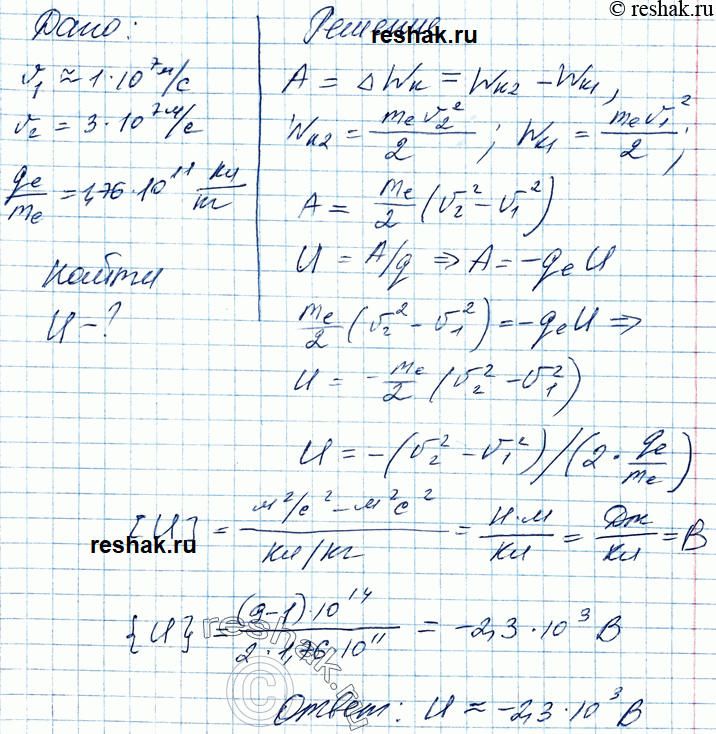 © reshak.ru
Дано:
v₁ ≈ 1·10⁷ м/с
v₂ = 3·10⁷ м/с
qe/me = 1,76·10¹¹ Кл/кг
Найти
U - ?
Решение
reshak.ru
A = ΔWк = Wк2 - Wк1,
Wк2 = me v₂²/2 ; Wк1 = me v₁²/2 ;
A = me/2 (v₂² - v₁²)
U = A/q ⇒ A = -qe U
me/2 (v₂² - v₁²) = -qe U ⇒
U = - me/2 (v₂² - v₁²)
U = -(v₂² - v₁²)/(2 · qe/me)
[U] = м²/с² - м²с² / Кл/кг = Н·м/Кл = Дж/Кл = В
reshak.ru
{U} = (9-1)·10¹⁴ / 2·1,76·10¹¹ = -2,3·10³ В
© reshak.ru
Ответ: U ≈ -2,3·10³ В